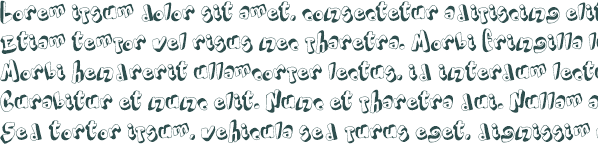 Lorem ipsum dolor sit amet, consectetur adipiscing elit
Etiam tempor vel risus nec pharetra. Morbi fringilla l
Morbi hendrerit ullamcorper lectus, id interdum lectu
Curabitur et nunc elit. Nunc et pharetra dui. Nullam a
Sed tortor ipsum, vehicula sed purus eget, dignissim